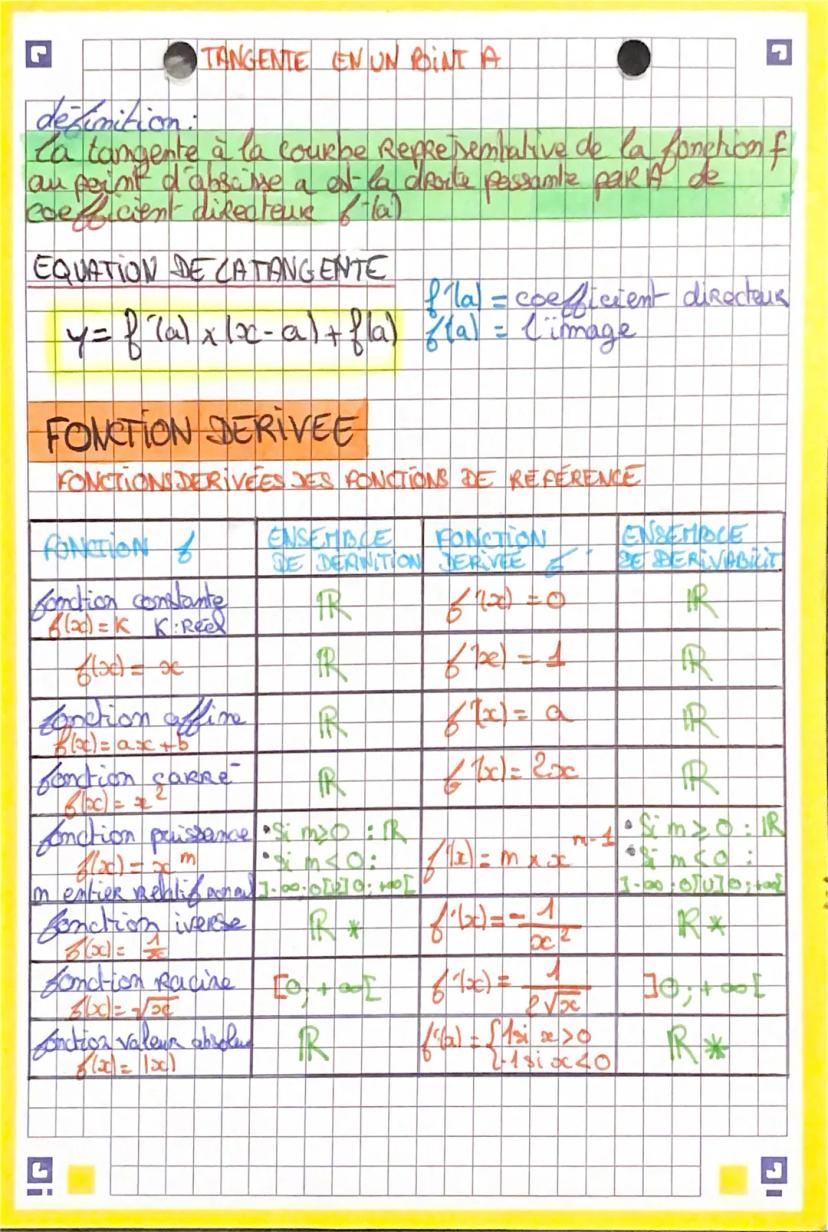 TANGENTE EN UN POINT A
définition:
la tangente à la courbe representative de la fonction f
au point d'abscisse a est la droite passante par A de
coefficient directeur f'(a)
EQUATION DE LA TANGENTE
f'(a) = coefficient directeur
y = f'(a) x (x-a) + f(a)
f(a) = l'image
FONCTION DERIVEE
FONCTIONS DERIVÉES DES FONCTIONS DE REFÉRENCE
FONCTION f ENSEMBLE DE DEFINITION FONCTION DERIVEE f' ENSEMBLE DE DERIVABILIT
fonction constante
f(x) = K K: Réel ℝ f'(x) = 0 ℝ
f(x) = x ℝ f'(x) = 1 ℝ
fonction affine
f(x) = ax + b ℝ f'(x) = a ℝ
fonction carré
f(x) = x² ℝ f'(x) = 2x ℝ
fonction puissance • Si m≥0 : ℝ • Si m ≥ 0 : ℝ
f(x) = x^m • Si m < 0 : f'(x) = m x x^(m-1) • Si m < 0 :
m entier relatif non nul ]-∞;0[U]0;+∞[ ]-∞;0[U]0;+∞[
fonction iverse
f(x) = 1/x ℝ* f'(x) = - 1/x² ℝ*
fonction racine
f(x) = √x [0;+∞[ f'(x) = 1/2√x ]0;+∞[
fonction valeur absolue
f(x) = |x| ℝ f'(x) = {1 si x>0 {-1 si x<0 ℝ*